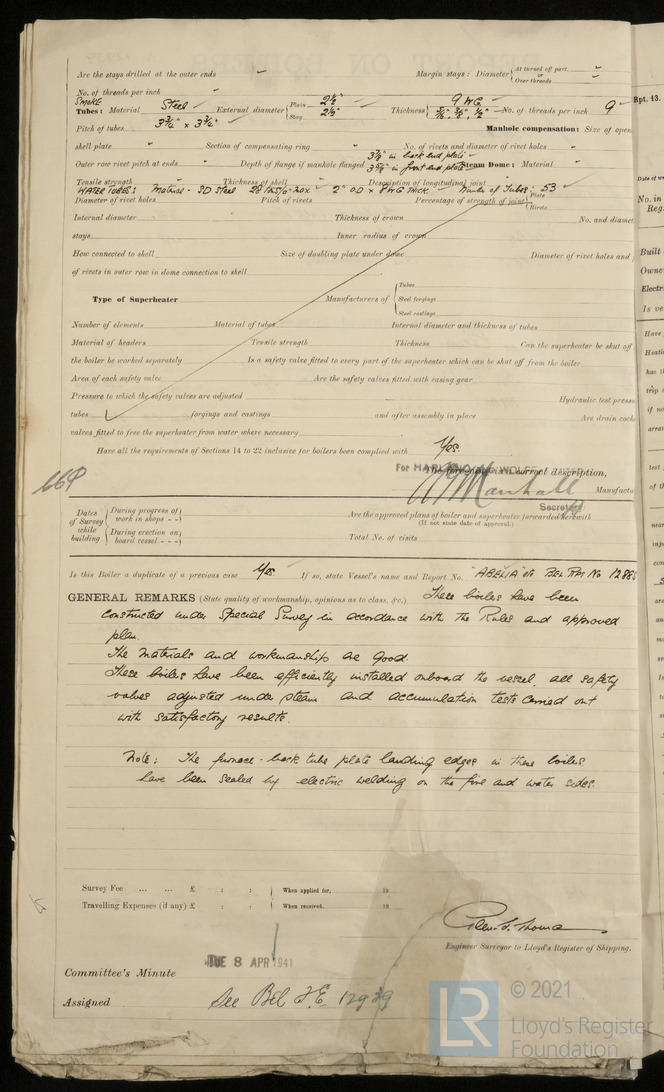 Are the stays drilled at the outer ends " Margin stays : Diameter { At turned off part " or Over threads "
No. of threads per inch "
SMOKE Tubes : Material Steel External diameter { Plain 2½" Stay 2½" Thickness { 9 WG No. of threads per inch 9
Pitch of tubes 3¾" × 3¾" Manhole compensation: Size of open
shell plate " Section of compensating ring " No. of rivets and diameter of rivet holes "
Outer row rivet pitch at ends " Depth of flange if manhole flanged in back end plate in front end plate Steam Dome : Material "
Tensile strength Thickness of shell Description of longitudinal joint
WATER TUBES : Material - SD Steel 2" OD × 8 WG THICK Number of Tubes : 53
Diameter of rivet holes Pitch of rivets Percentage of strength of joint { Plate Rivets
Internal diameter Thickness of crown No. and diamet
stays Inner radius of crown
How connected to shell Size of doubling plate under dome Diameter of rivet holes and
of rivets in outer row in dome connection to shell
Type of Superheater Manufacturers of { Tubes Steel forgings Steel castings
Number of elements Material of tubes Internal diameter and thickness of tubes
Material of headers Tensile strength Thickness Can the superheater be shut off
the boiler be worked separately Is a safety valve fitted to every part of the superheater which can be shut off from the boiler
Area of each safety valve Are the safety valves fitted with easing gear
Pressure to which the safety valves are adjusted Hydraulic test press
tubes forgings and castings and after assembly in place Are drain cock
valves fitted to free the superheater from water where necessary
Have all the requirements of Sections 14 to 22 inclusive for boilers been complied with Yes.
For HARLAND & WOLFF, LIMITED
The foregoing is a correct description,
Marshall Manufactu
Secretary
Dates of Survey while building { During progress of work in shops - - } During erection on board vessel - - - }
Are the approved plans of boiler and superheater forwarded herewith
(If not state date of approval.)
Total No. of visits
Is this Boiler a duplicate of a previous case Yes. If so, state Vessel's name and Report No. "ABELIA" etc BEL Rpt No
GENERAL REMARKS (State quality of workmanship, opinions as to class, &c.) These boilers have been
constructed under Special Survey in accordance with the Rules and approved
plan.
The materials and workmanship are good.
These boilers have been efficiently installed onboard the vessel, all safety
valves adjusted under steam and accumulation tests carried out
with satisfactory results.
Note : The furnace - back tube plate landing edges in these boilers
have been sealed by electric welding on the fire and water sides.
Survey Fee ... ... £ : : When applied for, 19
Travelling Expenses (if any) £ : : When received, 19
Engineer Surveyor to Lloyd's Register of Shipping.
TUE 8 APR 1941
Committee's Minute
Assigned See Bel F.E. 12939
Rpt. 13.
Date of w
No. in
Reg.
Built
Owne
Electr
Is ve
Have
LR © 2021
Lloyd's Register
Foundation